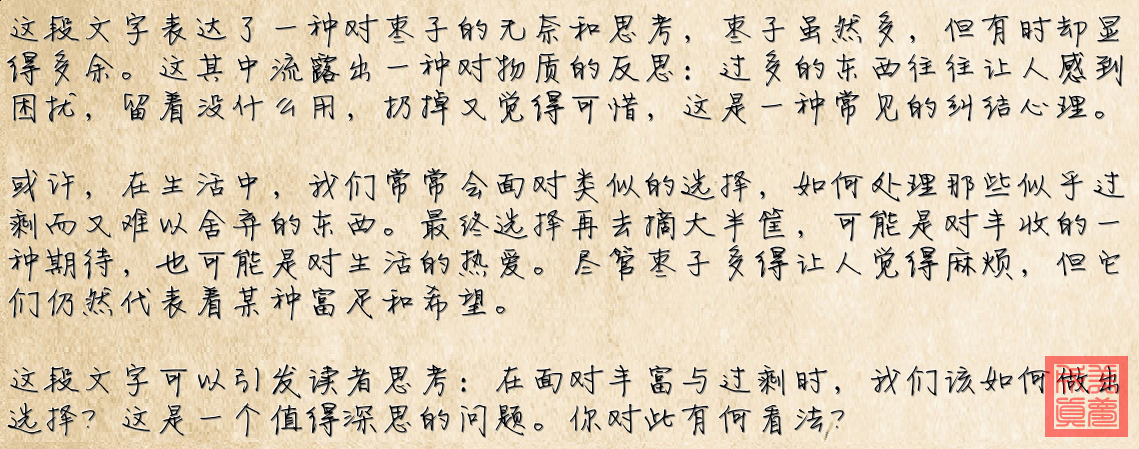 这段文字表达了一种对枣子的无奈和思考，枣子虽然多，但有时却显
得多余。这其中流露出一种对物质的反思：过多的东西往往让人感到
困扰，留着没什么用，扔掉又觉得可惜，这是一种常见的纠结心理。
或许，在生活中，我们常常会面对类似的选择，如何处理那些似乎过
剩而又难以舍弃的东西。最终选择再去摘大半筐，可能是对丰收的一
种期待，也可能是对生活的热爱。尽管枣子多得让人觉得麻烦，但它
们仍然代表着某种富足和希望。
这段文字可以引发读者思考：在面对丰富与过剩时，我们该如何做出
选择？这是一个值得深思的问题。你对此有何看法？